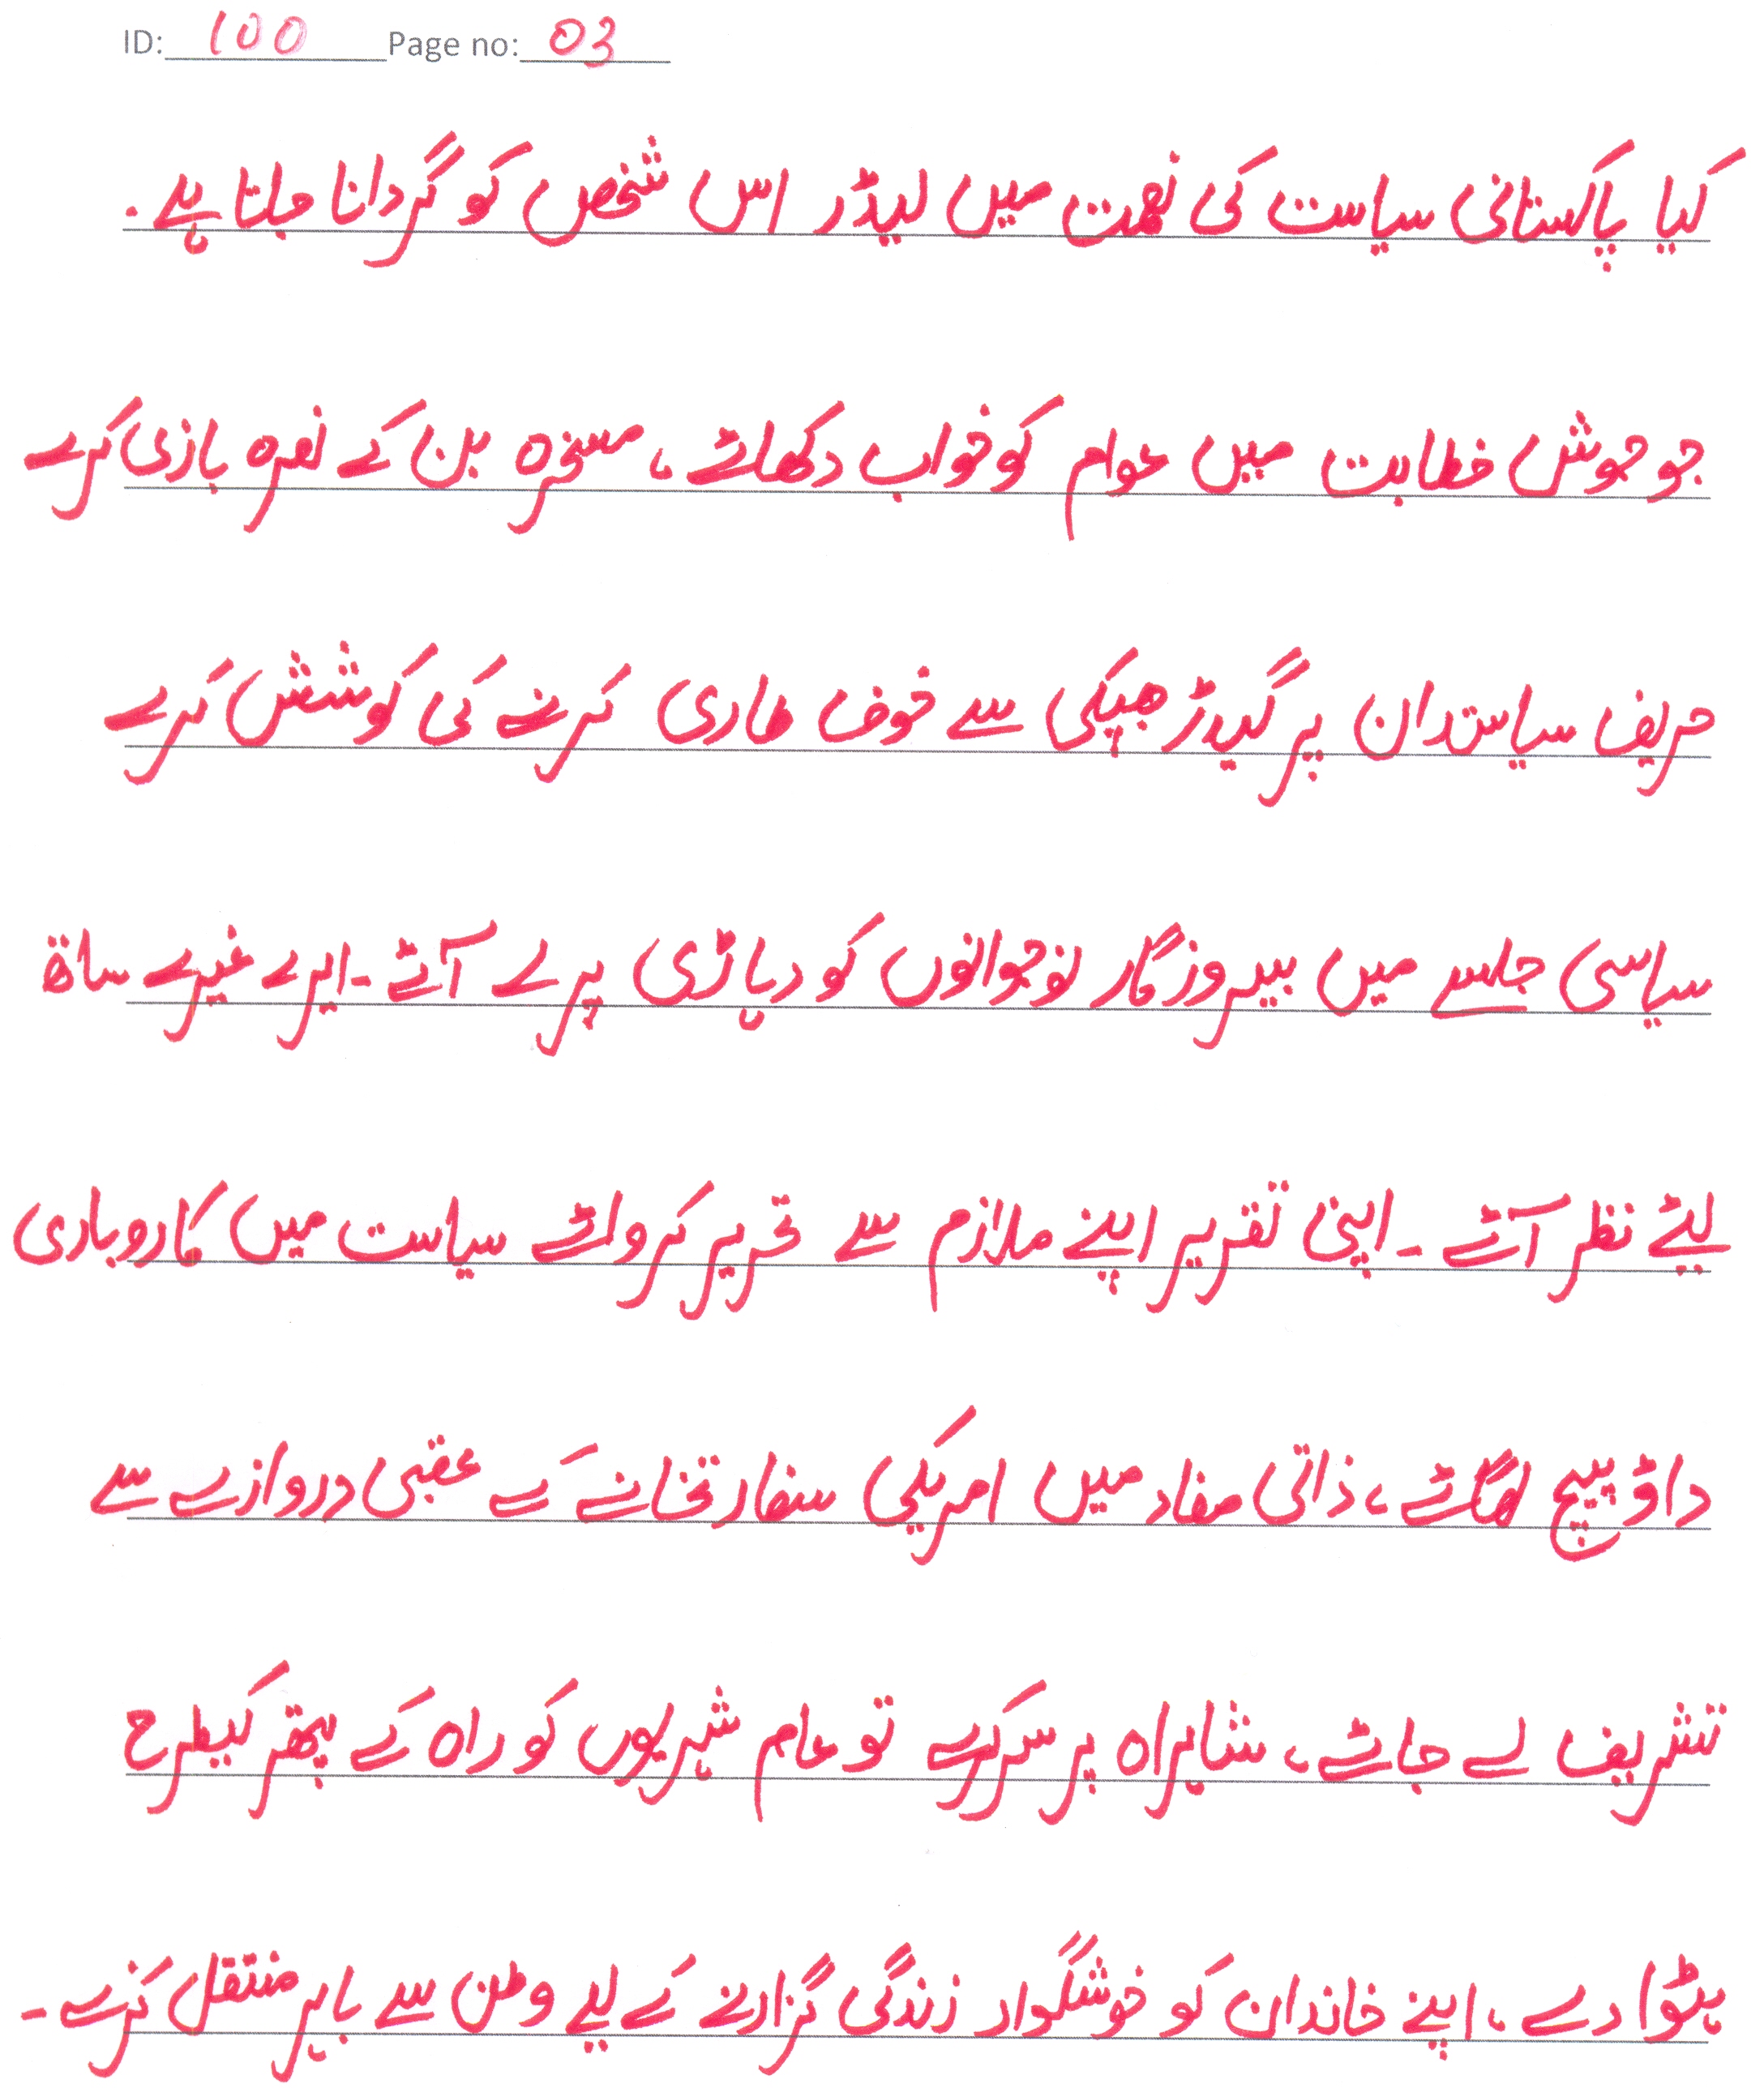 ID: 100 Page no: 03
کیا پاکستانی سیاست کی لغت میں لیڈر اس شخص کو گردانا جاتا ہے۔
جو جوش خطابت میں عوام کو خواب دکھائے، مسخرہ بن کے نعرہ بازی کرے
حریف سیاستدان پر گیدڑ بھبکی سے خوف طاری کرنے کی کوشش کرے
سیاسی جلسے میں بیروزگار نوجوانوں کو دہاڑی پر لے آئے ۔ ایرے غیرے ساتھ
لئے نظر آئے ۔ اپنی تقریر اپنے ملازم سے تحریر کروائے سیاست میں کاروباری
داؤ پیچ لگائے، ذاتی مفاد میں امریکی سفارتخانے کے عقبی دروازے سے
تشریف لے جائے، شاہراہ پر سرکرے تو عام شہریوں کو راہ کے پتھر کیطرح
ہٹوا دے، اپنے خاندان کو خوشگوار زندگی گزارنے کے لیے وطن سے باہر منتقل کرے ۔